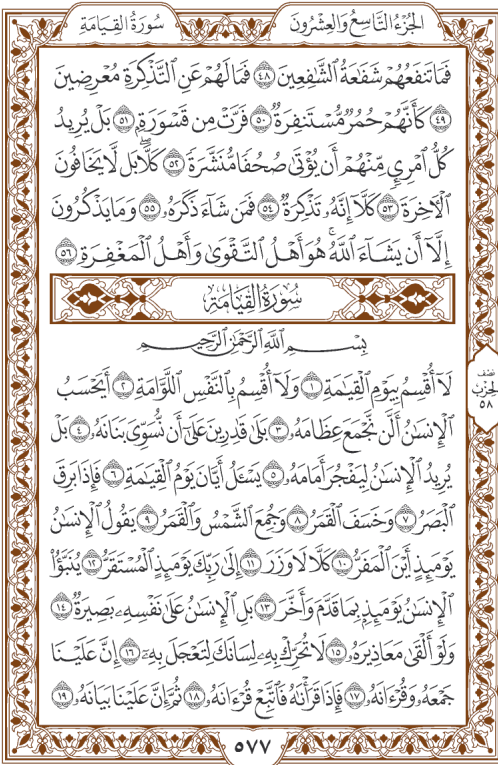 سُورَةُ القِيَامَةِ الجُزْءُ التَّاسِعُ وَالعِشْرُونَ
فَمَا تَنفَعُهُمْ شَفَٰعَةُ ٱلشَّٰفِعِينَ ٤٨ فَمَا لَهُمْ عَنِ ٱلتَّذْكِرَةِ مُعْرِضِينَ
٤٩ كَأَنَّهُمْ حُمُرٌ مُّسْتَنفِرَةٌ ٥٠ فَرَّتْ مِن قَسْوَرَةٍۭ ٥١ بَلْ يُرِيدُ
كُلُّ ٱمْرِئٍ مِّنْهُمْ أَن يُؤْتَىٰ صُحُفًا مُّنَشَّرَةً ٥٢ كَلَّاۖ بَل لَّا يَخَافُونَ
ٱلْأٓخِرَةَ ٥٣ كَلَّآ إِنَّهُۥ تَذْكِرَةٌ ٥٤ فَمَن شَآءَ ذَكَرَهُۥ ٥٥ وَمَا يَذْكُرُونَ
إِلَّآ أَن يَشَآءَ ٱللَّهُۚ هُوَ أَهْلُ ٱلتَّقْوَىٰ وَأَهْلُ ٱلْمَغْفِرَةِ ٥٦
سُورَةُ القِيَامَةِ
بِسْمِ ٱللَّهِ ٱلرَّحْمَٰنِ ٱلرَّحِيمِ
لَآ أُقْسِمُ بِيَوْمِ ٱلْقِيَٰمَةِ ١ وَلَآ أُقْسِمُ بِٱلنَّفْسِ ٱللَّوَّامَةِ ٢ أَيَحْسَبُ
ٱلْإِنسَٰنُ أَلَّن نَّجْمَعَ عِظَامَهُۥ ٣ بَلَىٰ قَٰدِرِينَ عَلَىٰٓ أَن نُّسَوِّىَ بَنَانَهُۥ ٤ بَلْ
يُرِيدُ ٱلْإِنسَٰنُ لِيَفْجُرَ أَمَامَهُۥ ٥ يَسْـَٔلُ أَيَّانَ يَوْمُ ٱلْقِيَٰمَةِ ٦ فَإِذَا بَرِقَ
ٱلْبَصَرُ ٧ وَخَسَفَ ٱلْقَمَرُ ٨ وَجُمِعَ ٱلشَّمْسُ وَٱلْقَمَرُ ٩ يَقُولُ ٱلْإِنسَٰنُ
يَوْمَئِذٍ أَيْنَ ٱلْمَفَرُّ ١٠ كَلَّا لَا وَزَرَ ١١ إِلَىٰ رَبِّكَ يَوْمَئِذٍ ٱلْمُسْتَقَرُّ ١٢ يُنَبَّؤُا۟
ٱلْإِنسَٰنُ يَوْمَئِذٍۭ بِمَا قَدَّمَ وَأَخَّرَ ١٣ بَلِ ٱلْإِنسَٰنُ عَلَىٰ نَفْسِهِۦ بَصِيرَةٌ ١٤
وَلَوْ أَلْقَىٰ مَعَاذِيرَهُۥ ١٥ لَا تُحَرِّكْ بِهِۦ لِسَانَكَ لِتَعْجَلَ بِهِۦٓ ١٦ إِنَّ عَلَيْنَا
جَمْعَهُۥ وَقُرْءَانَهُۥ ١٧ فَإِذَا قَرَأْنَٰهُ فَٱتَّبِعْ قُرْءَانَهُۥ ١٨ ثُمَّ إِنَّ عَلَيْنَا بَيَانَهُۥ ١٩
نِصْف
الحِزْب
٥٨
٥٧٧